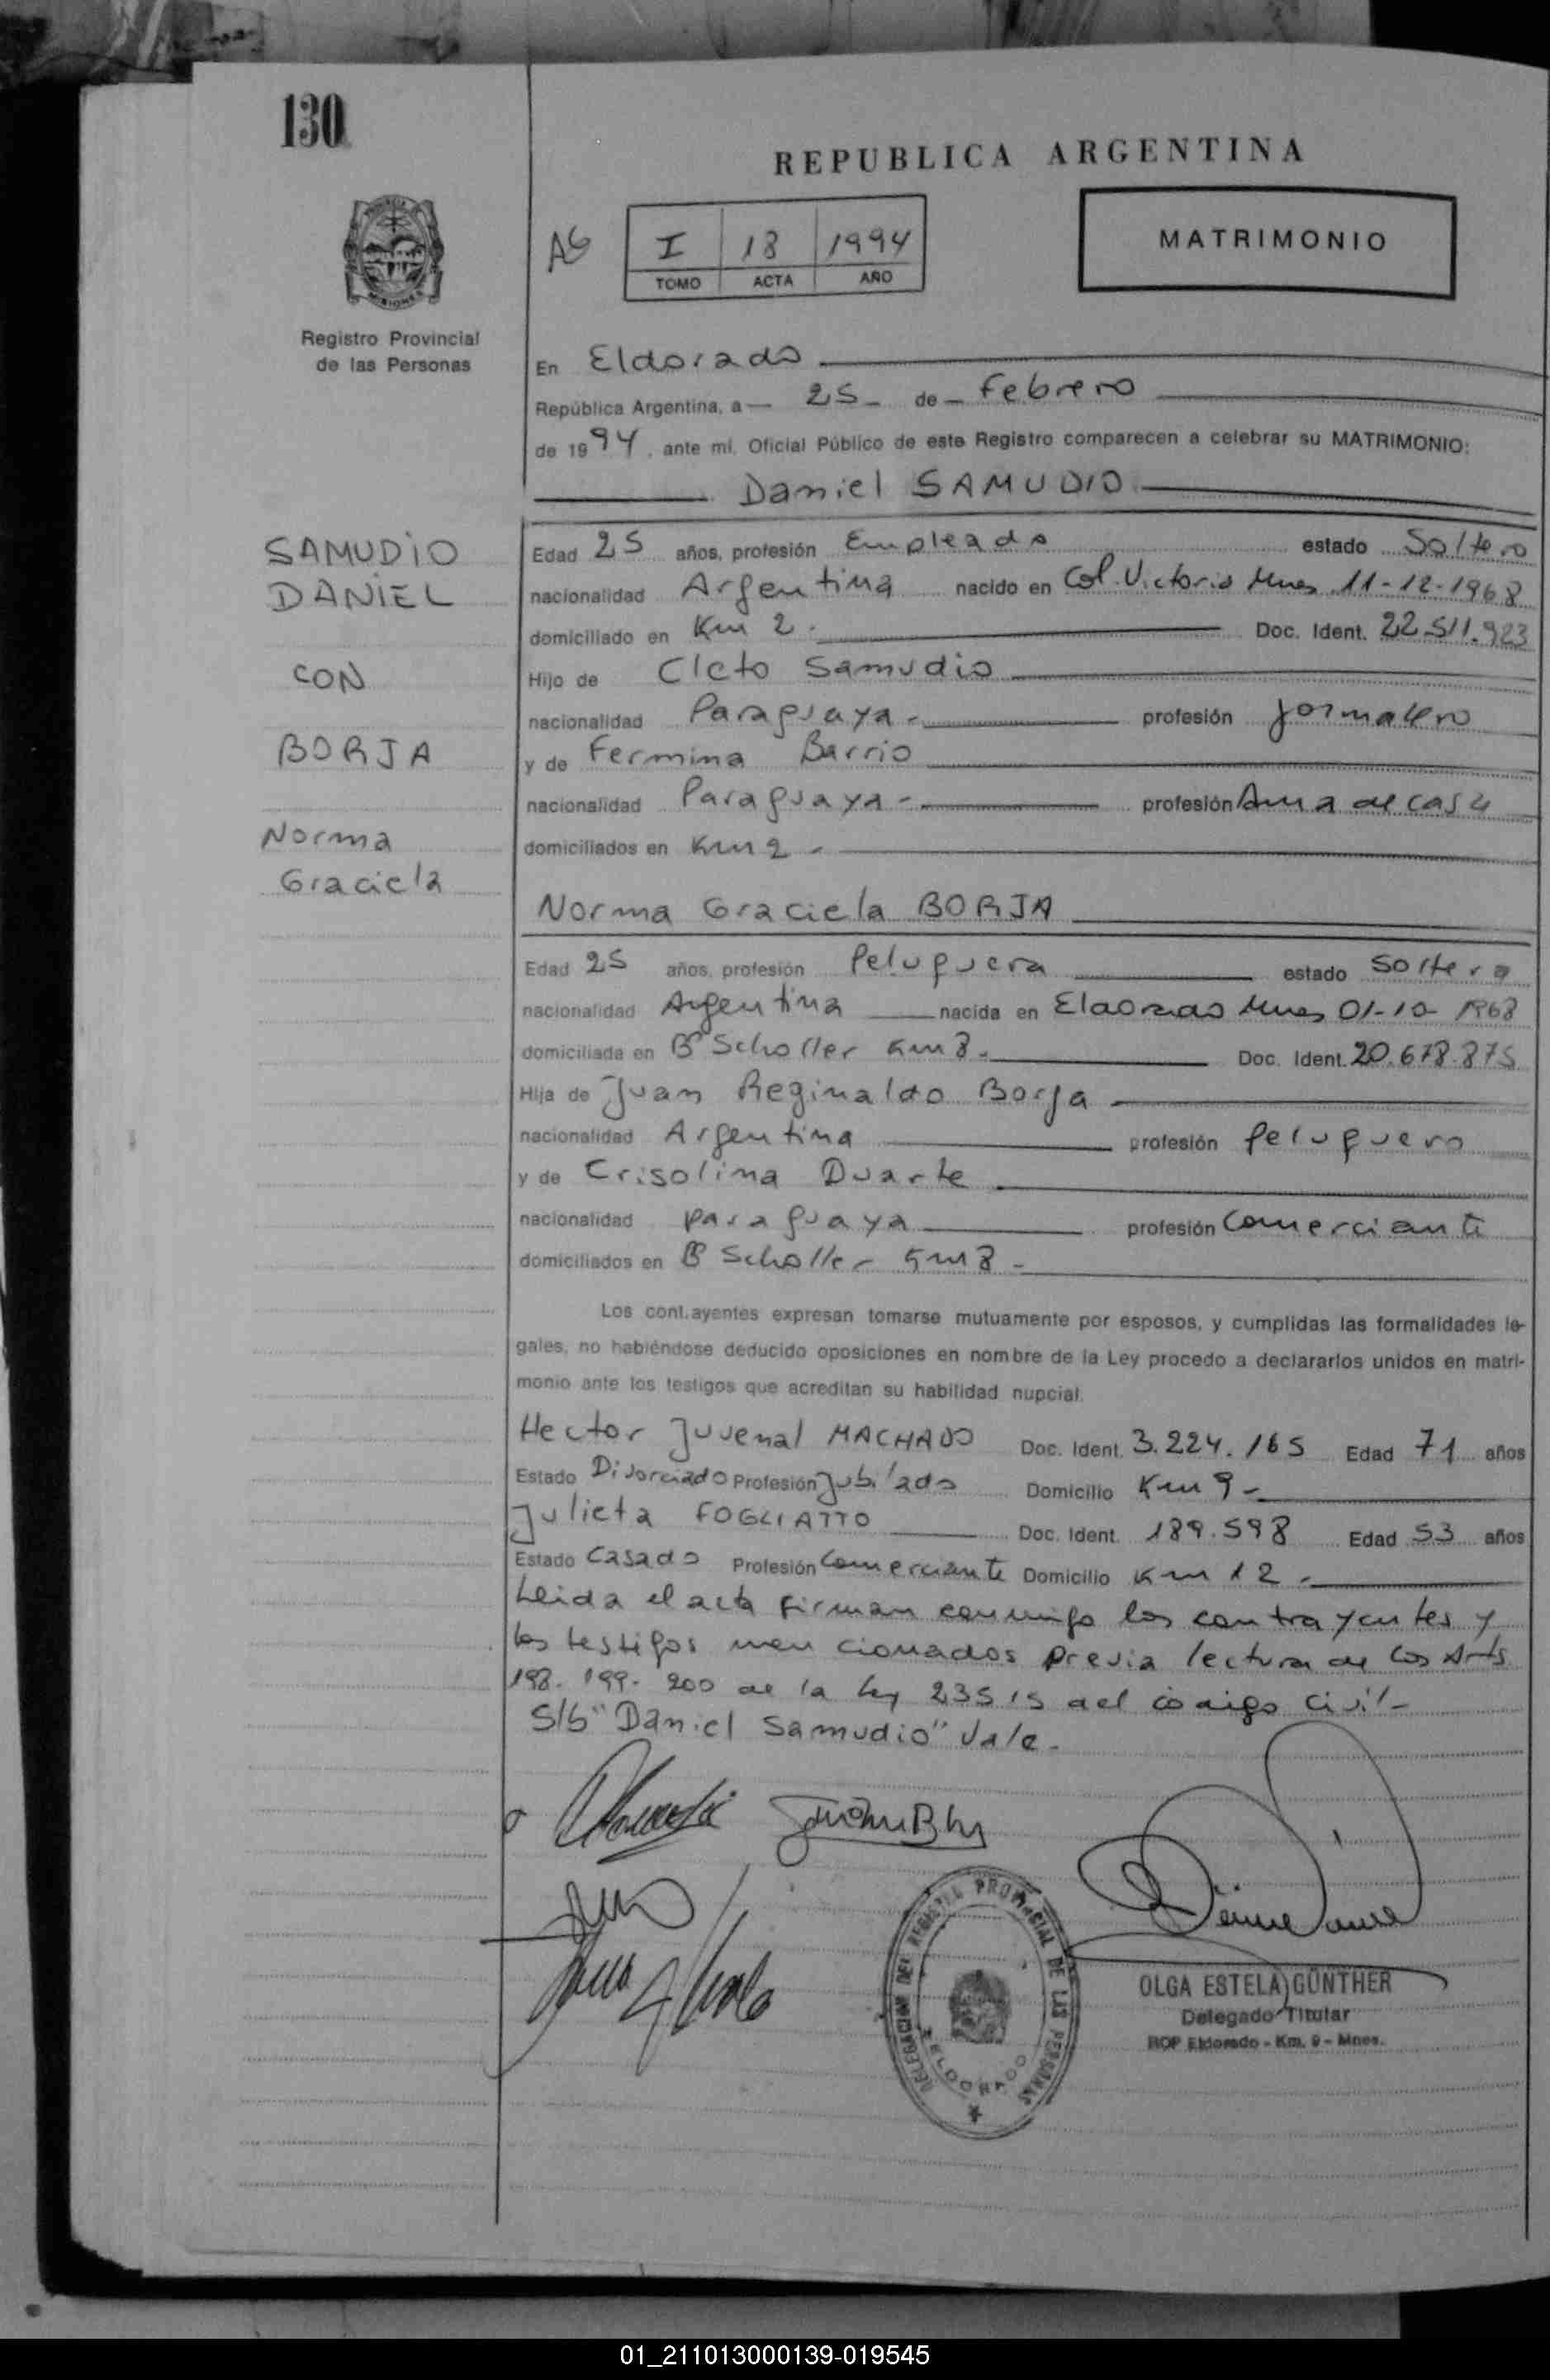 130
REPUBLICA ARGENTINA
MATRIMONIO
AG
I 18 1994
TOMO ACTA AÑO
PROVINCIA
MISIONES
Registro Provincial
de las Personas
En Eldorado
República Argentina, a 25 de Febrero
de 1994, ante mi, Oficial Público de este Registro comparecen a celebrar su MATRIMONIO:
Daniel SAMUDIO
SAMUDIO
DANIEL
CON
BORJA
Norma
Graciela
Edad 25 años, profesión Empleado estado Soltero
nacionalidad Argentina nacido en Col. Victoria Mnes 11-12-1968
domiciliado en Km 2. Doc. Ident. 22.511.923
Hijo de Cleto Samudio
nacionalidad Paraguaya - profesión Jornalero
y de Fermina Barrio
nacionalidad Paraguaya - profesión Ama de casa
domiciliados en Km 2 -
Norma Graciela BORJA
Edad 25 años, profesión Peluquera estado Soltera
nacionalidad Argentina nacida en Eldorado Mnes 01-10-1968
domiciliada en Bº Scholler Km 8. Doc. Ident. 20.678.875
Hija de Juan Reginaldo Borja
nacionalidad Argentina profesión Peluquero
y de Crisolina Duarte
nacionalidad paraguaya profesión Comerciante
domiciliados en Bº Scholler Km 8 -
Los cont.ayentes expresan tomarse mutuamente por esposos, y cumplidas las formalidades le-
gales, no habiéndose deducido oposiciones en nombre de la Ley procedo a declararlos unidos en matri-
monio ante los testigos que acreditan su habilidad nupcial.
Hector Juvenal MACHADO Doc. Ident. 3.224.165 Edad 71 años
Estado Divorciado Profesión Jubilado Domicilio Km 9 -
Julieta FOGLIATTO Doc. Ident. 189.598 Edad 53 años
Estado Casado Profesión Comerciante Domicilio Km 12 -
Leida el acta firman conmigo los contrayentes y
los testigos mencionados previa lectura de los Arts
198. 199. 200 de la Ley 23515 del codigo civil -
S/b "Daniel Samudio" Vale -
DELEGACION DEL REGISTRO PROVINCIAL DE LAS PERSONAS
ELDORADO
OLGA ESTELA GÜNTHER
Delegado Titular
RCP Eldorado - Km. 9 - Mnes.
01_211013000139-019545